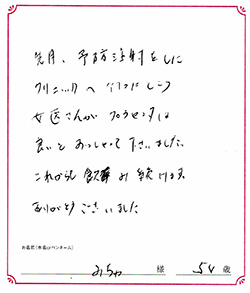 先月、予防注射をしに
クリニックへ行つたら
女医さんが プラセンタは
良いと おっしゃって下さいました。
これからも 飲み続けます
ありがとうございました
お名前(本名orペンネーム)
みちゃ 様 54 歳